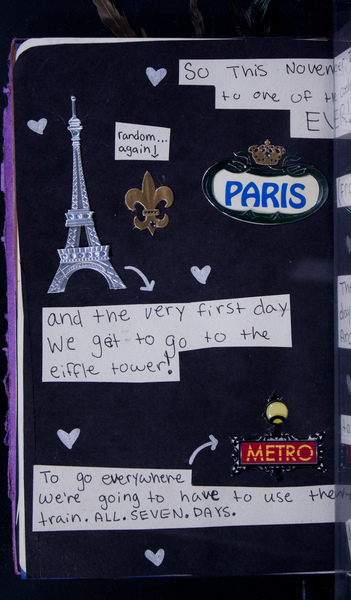 So This Novem
to one of
EV
random...
again
PARIS
and the very first day
We got to go to the
eiffle tower!
METRO
To go everywhere
we're going to have to use the
train. ALL. SEVEN. DAYS.